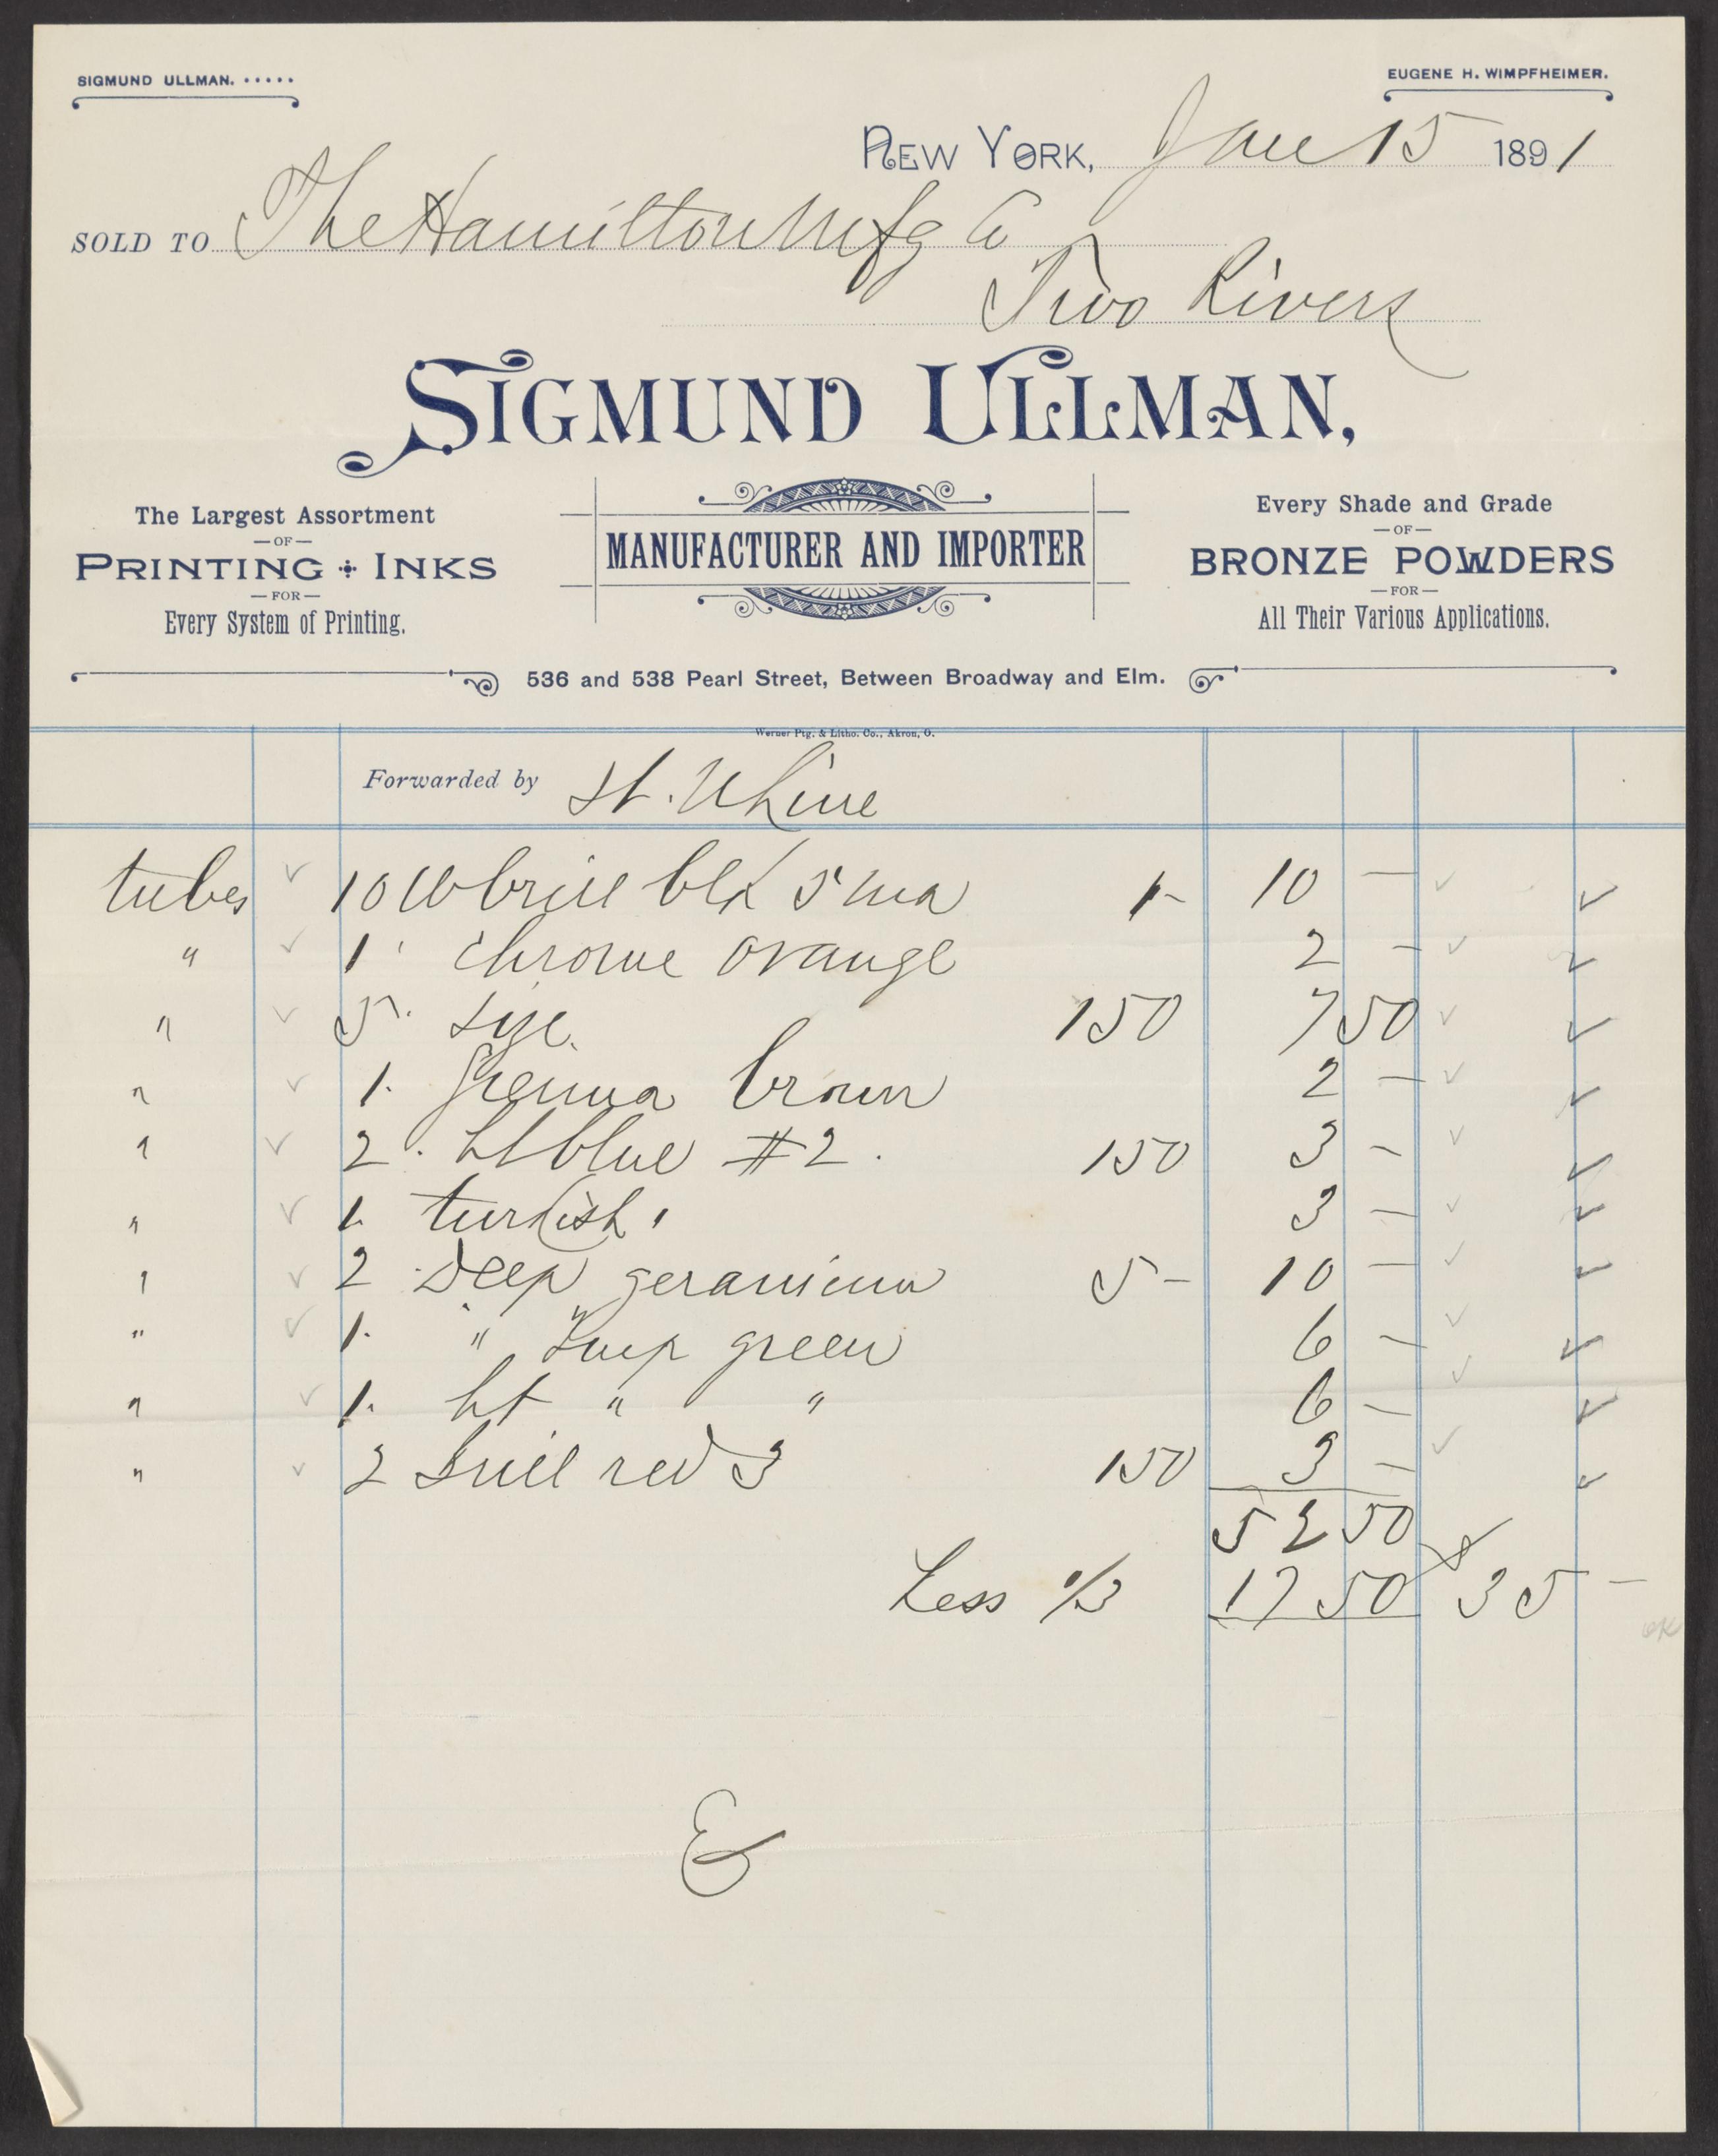 SIGMUND ULLMAN. . . . . .
EUGENE H. WIMPFHEIMER.
NEW YORK, Jan 15 1891
SOLD TO The Hamilton Mfg Co
Two Rivers
SIGMUND ULLMAN,
The Largest Assortment
—OF—
PRINTING + INKS
—FOR—
Every System of Printing.
MANUFACTURER AND IMPORTER
Every Shade and Grade
—OF—
BRONZE POWDERS
—FOR—
All Their Various Applications.
536 and 538 Pearl Street, Between Broadway and Elm.
Werner Ptg. & Litho. Co., Akron, O.
Forwarded by
tubes ✓ 10 lb brill blk 1- 10 — ✓ ✓
" ✓ 1 chrome orange 2 — ✓ ✓
" ✓ 5. size 150 7 50 ✓ ✓
" ✓ 1. sienna brown 2 — ✓ ✓
" ✓ 2. Lt blue #2. 150 3 — ✓ ✓
" ✓ 1. turkish " 3 — ✓ ✓
" ✓ 2 deep geranium 5- 10 — ✓ ✓
" ✓ 1. " green 6 — ✓ ✓
" ✓ 1. Lt " " 6 — ✓ ✓
" ✓ 2 brill red 3 150 3 — ✓ ✓
52 50
Less 1/3 17 50 35 —
OK
&